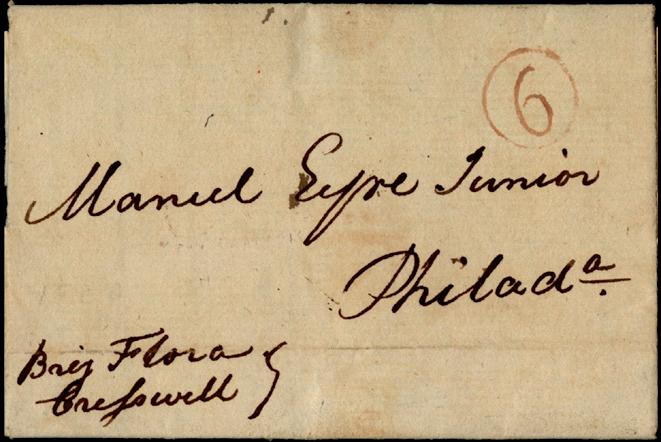 6
Manuel Eyre Junior
Philadª.
Brig Flora
Creſswell